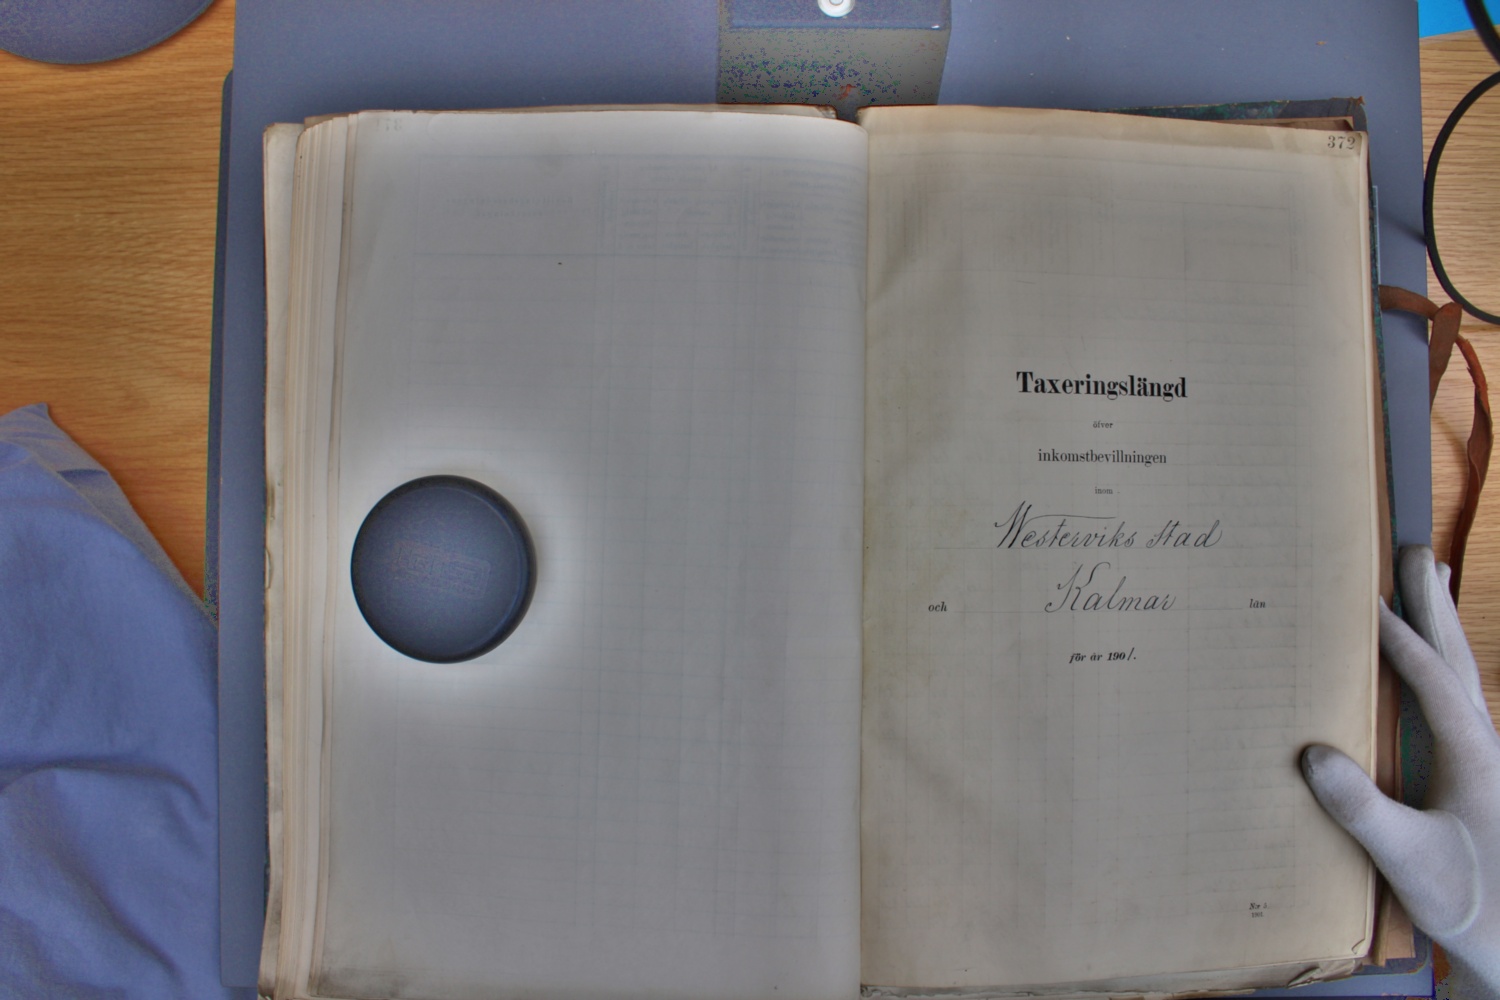 372
Taxeringslängd
öfver
inkomstbevillningen
inom
Westerviks stad
och Kalmar län
för år 1901.
N:r 5.